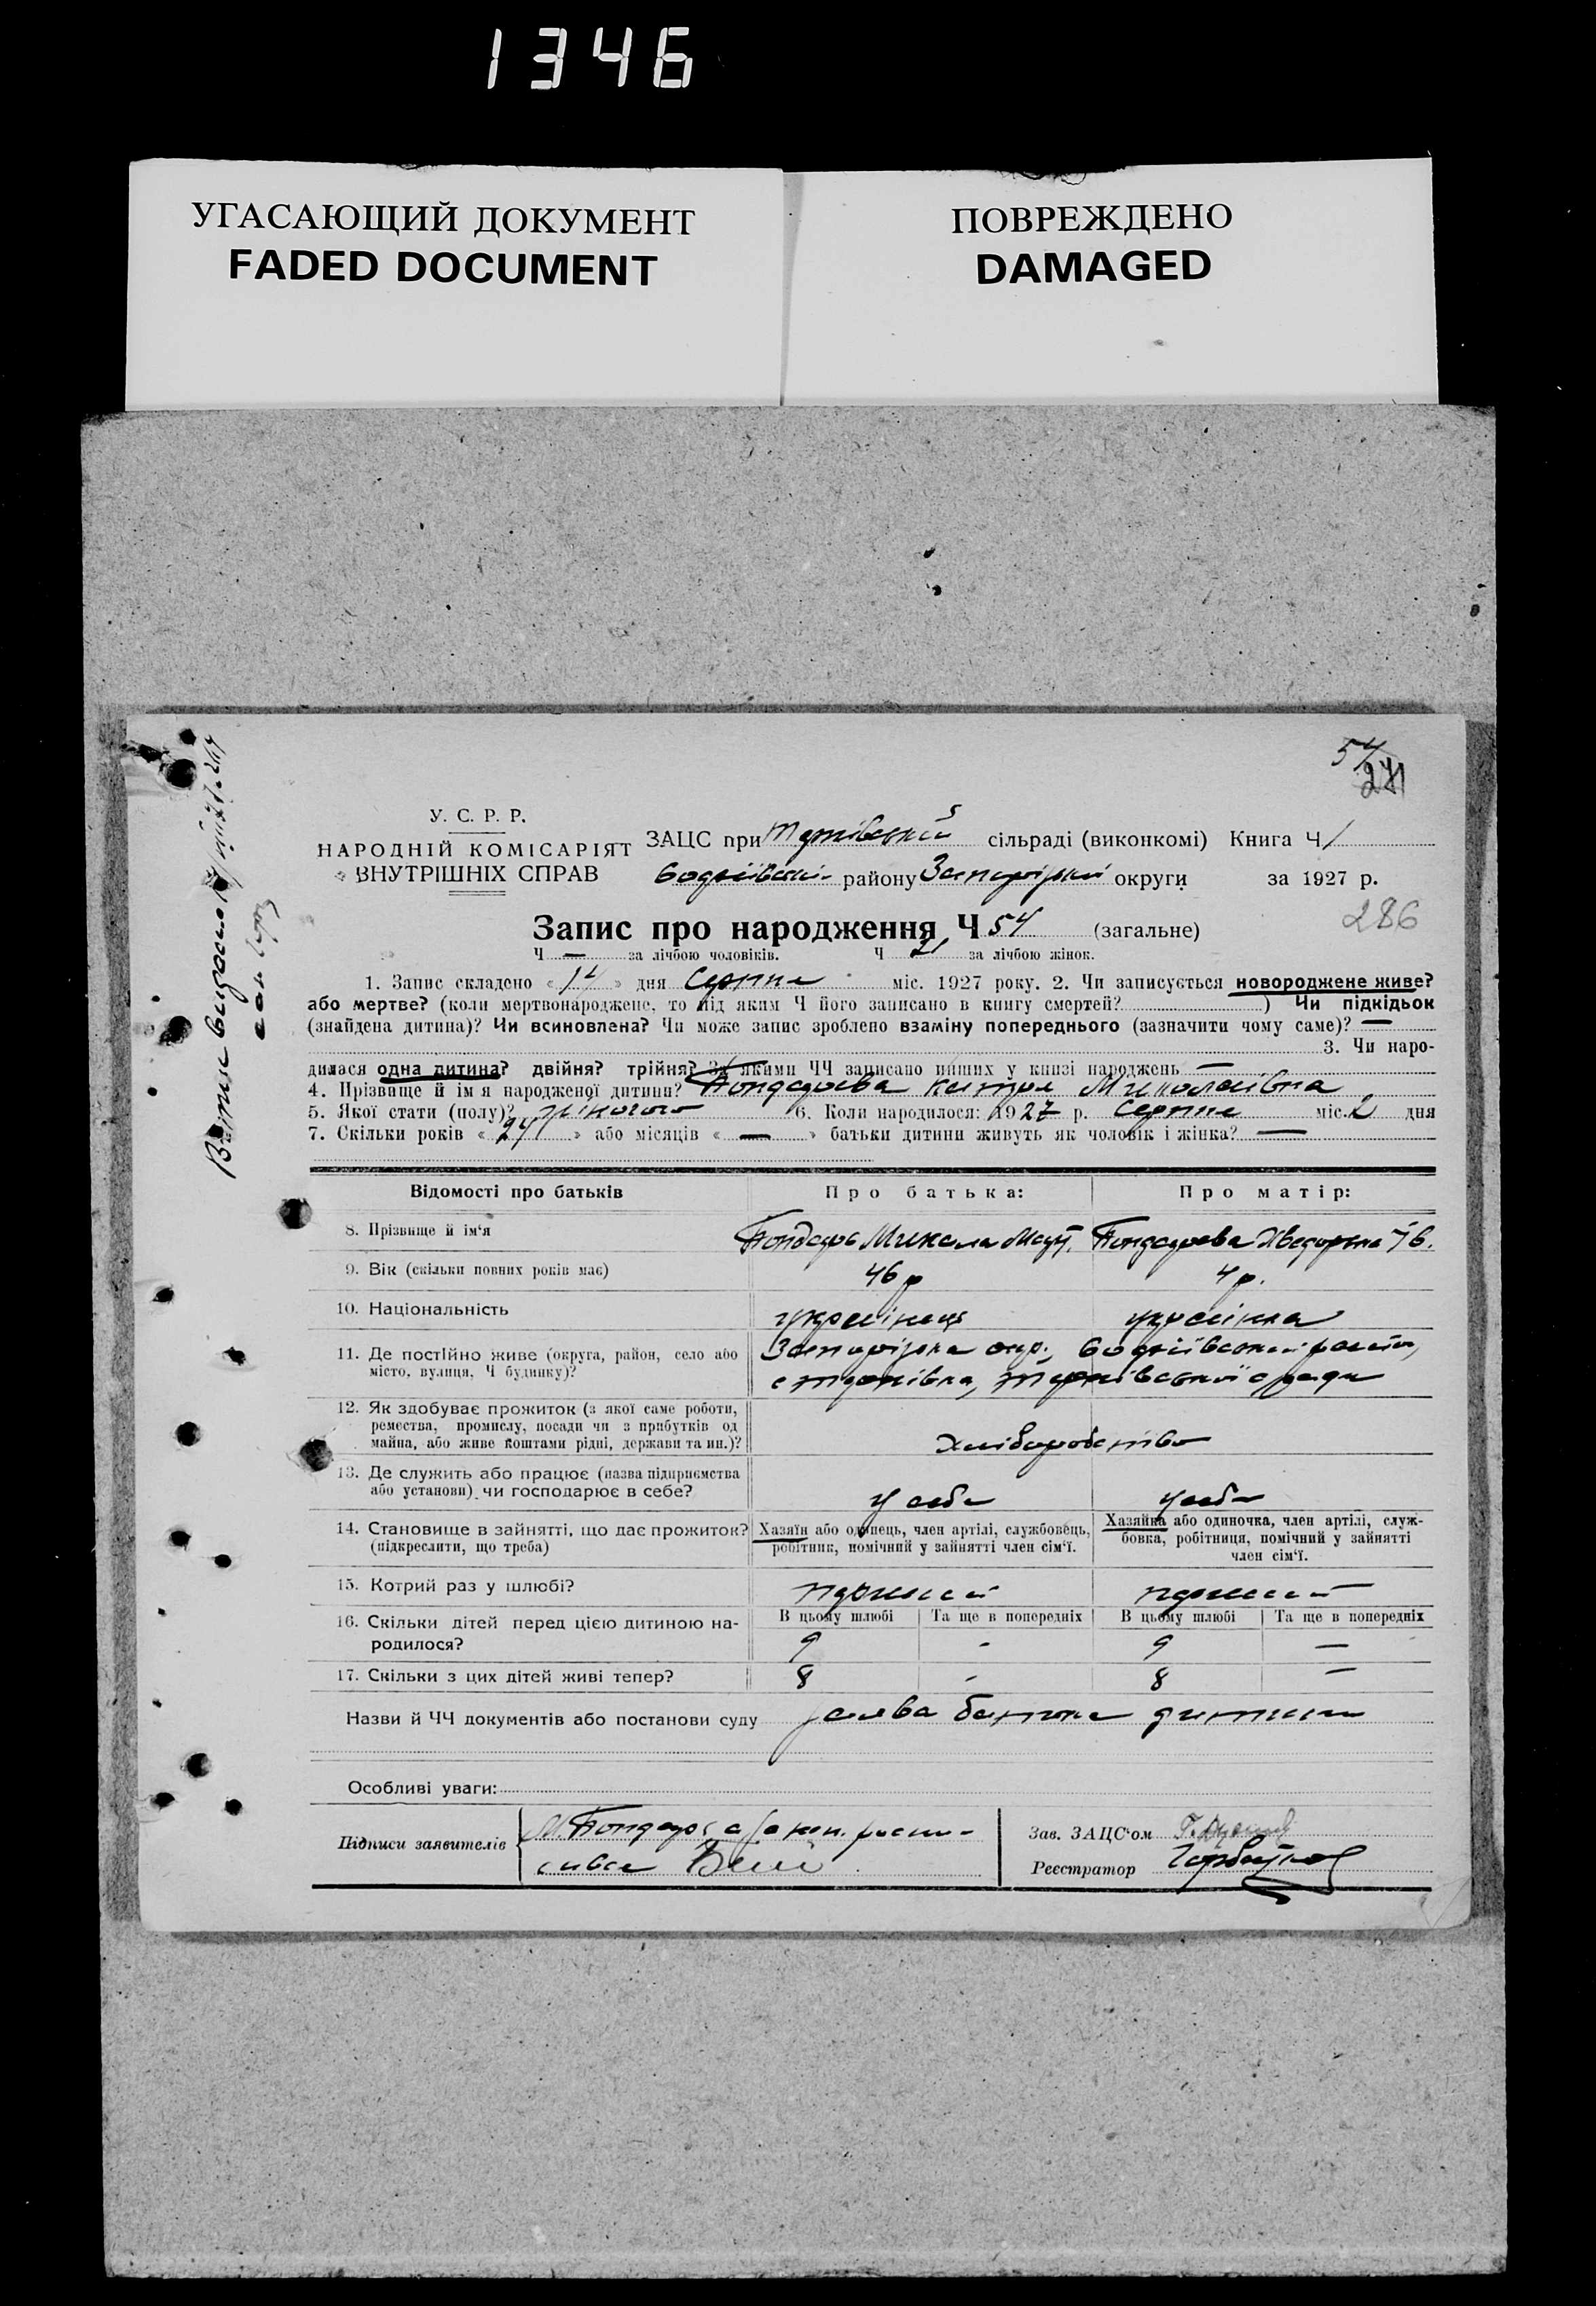 1346
УГАСАЮЩИЙ ДОКУМЕНТ
FADED DOCUMENT
ПОВРЕЖДЕНО
DAMAGED
54
У. С. Р. Р.
НАРОДНІЙ КОМІСАРІЯТ
ВНУТРІШНІХ СПРАВ
ЗАЦС при сільраді (виконкомі) Книга Ч 1
району округи за 1927 р.
286
Запис про народження Ч 54 (загальне)
Ч — за лічбою чоловіків. Ч 21 за лічбою жінок.
1. Запис складено « 14 » дня Серпня міс. 1927 року. 2. Чи записується новороджене живе?
або мертве? (коли мертвонароджене, то під яким Ч його записано в книгу смертей? ) Чи підкідьок
(знайдена дитина)? Чи всиновлена? Чи може запис зроблено взаміну попереднього (зазначити чому саме)? —
3. Чи наро-
дилася одна дитина? двійня? трійня? За якими ЧЧ записано инших у книзі народжень —
4. Прізвище й ім'я народженої дитини? Бондарєва Миколаївна
5. Якої стати (полу)? жіночого 6. Коли народилося: 1927 р. Серпня міс. 2 дня
7. Скільки років « 24 » або місяців « — » батьки дитини живуть як чоловік і жінка? —
Відомості про батьків
Про батька:
Про матір:
8. Прізвище й ім'я Бондарь Микола Бондарєва
9. Вік (скільки повних років має) 46 р
10. Національність українець українка
11. Де постійно живе (округа, район, село або
місто, вулиця, Ч будинку)?
Запорізька окр.,
12. Як здобуває прожиток (з якої саме роботи,
ремества, промислу, посади чи з прибутків од
майна, або живе коштами рідні, держави та ин.)?
Хліборобство
13. Де служить або працює (назва підприємства
або установи) чи господарює в себе?
У себе У себе
14. Становище в зайнятті, що дає прожиток?
(підкреслити, що треба)
Хазяїн або одинець, член артілі, службовець,
робітник, помічний у зайнятті член сім'ї.
Хазяйка або одиночка, член артілі, служ-
бовка, робітниця, помічний у зайнятті
член сім'ї.
15. Котрий раз у шлюбі?
16. Скільки дітей перед цією дитиною на-
родилося?
В цьому шлюбі Та ще в попередніх В цьому шлюбі Та ще в попередніх
9 - 9 —
17. Скільки з цих дітей живі тепер? 8 - 8 —
Назви й ЧЧ документів або постанови суду заява батька дитини
Особливі уваги:
Підписи заявителів М. Бондарь
Зав. ЗАЦС'ом
Реєстратор